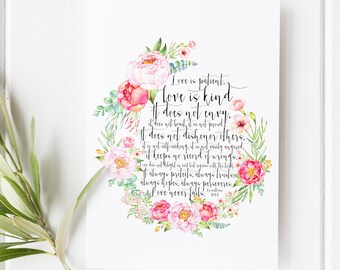 Love is patient,
love is kind.
It does not envy,
it does not boast, it is not proud.
It does not dishonor others,
it is not self-seeking, it is not easily angered,
it keeps no record of wrongs.
Love does not delight in evil but rejoices with the truth.
It always protects, always trusts,
always hopes, always perseveres.
Love never fails.